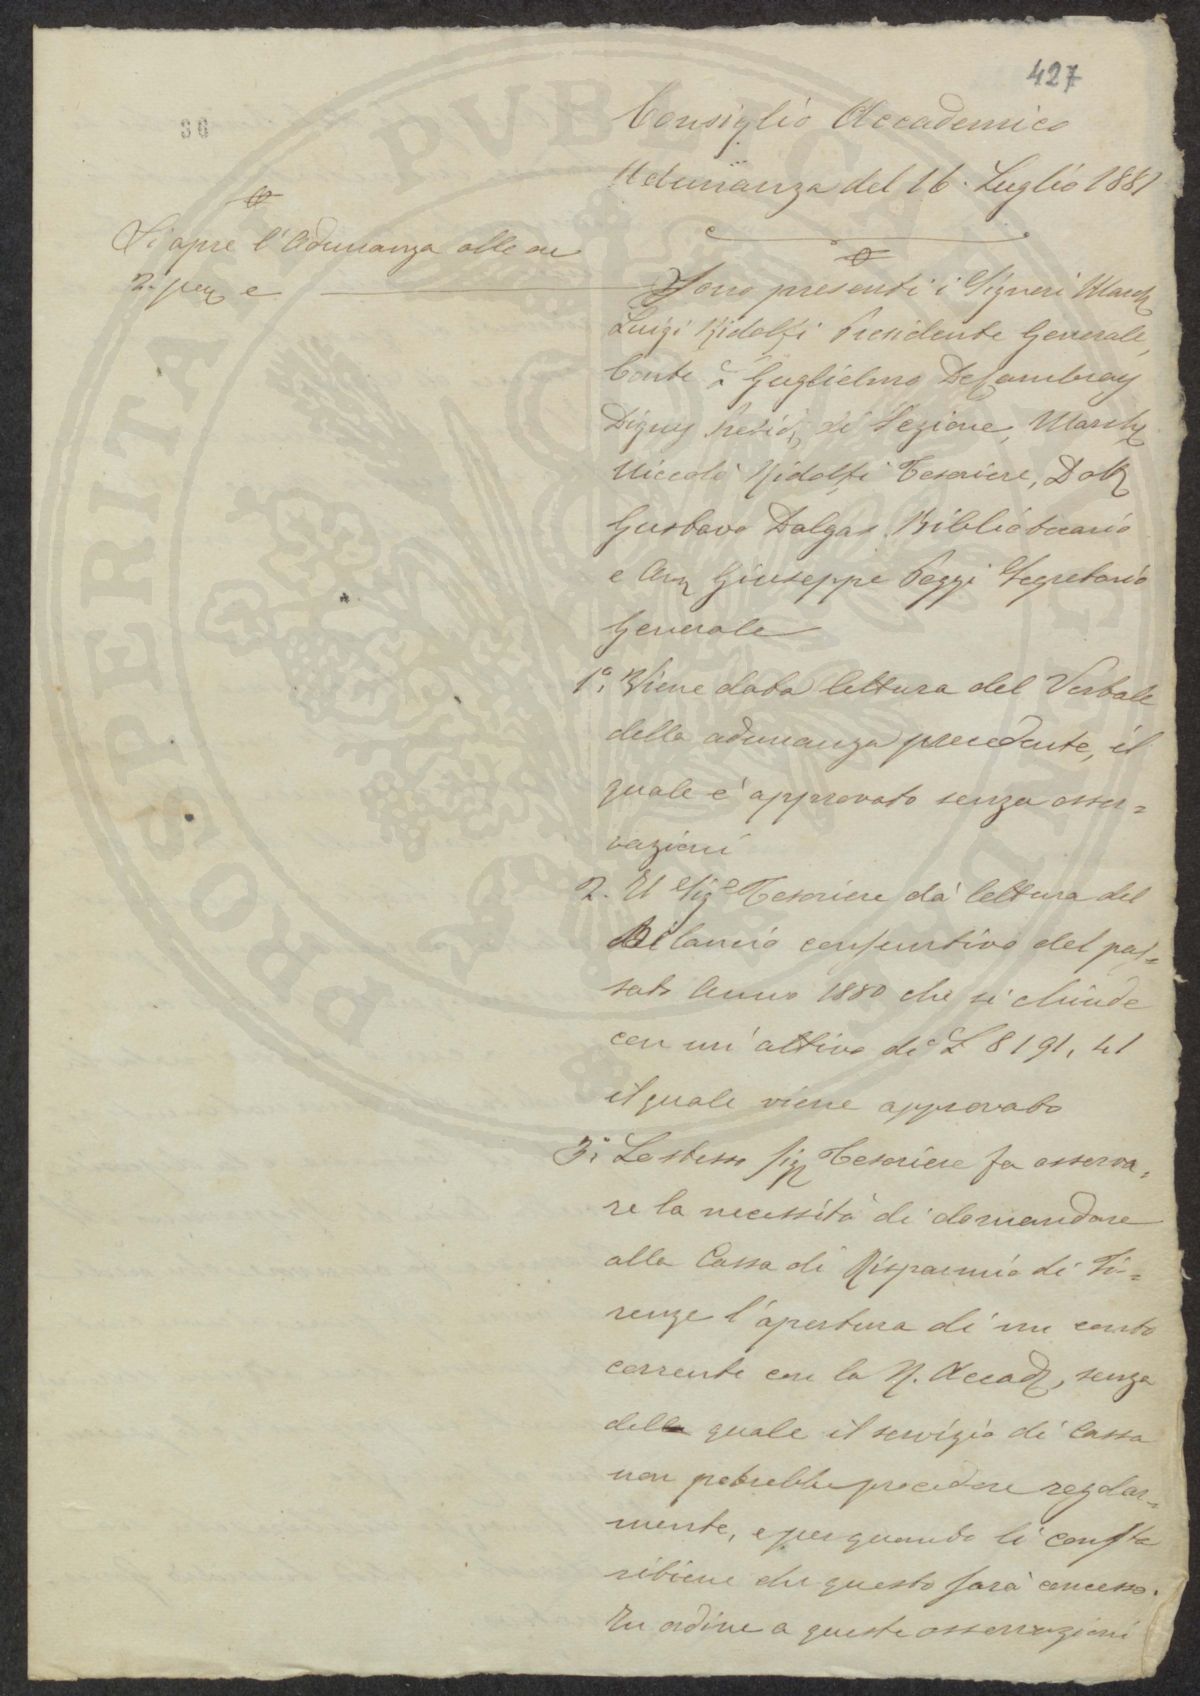 427
Consiglio Accademico
30
Adunanza del 16. Luglio 1881
Si apre l'Adunanza alle ore
2. pom e
Sono presenti i Signori March
Luigi Ridolfi Presidente Generale,
Conte Guglielmo De Cambray
Digny Presid di Sezione, March
Niccolò Ridolfi Tesoriere, Dott
Gustavo Dalgas Bibliotecario
e Avv Giuseppe Poggi Segretario
Generale
1º. Viene data lettura del Verbale
della adunanza precedente, il
quale è approvato senza osser=
vazioni
2. Il Sigr Tesoriere dà lettura del
Bilancio consuntivo del pas=
sato Anno 1880 che si chiude
con un' attivo di £ 8191, 41
il quale viene approvato
3º. Lo stesso Sigr Tesoriere fa osserva=
re la necessità di domandare
alla Cassa di Risparmio di Fi=
renze l'apertura di un conto
corrente con la N. Accad, senza
della quale il servizio di Cassa
non potrebbe procedere regolar=
mente, e per quanto li consta
ritiene che questo sarà concesso.
In ordine a queste osservazioni
PROSPERITATI PVBLICAE